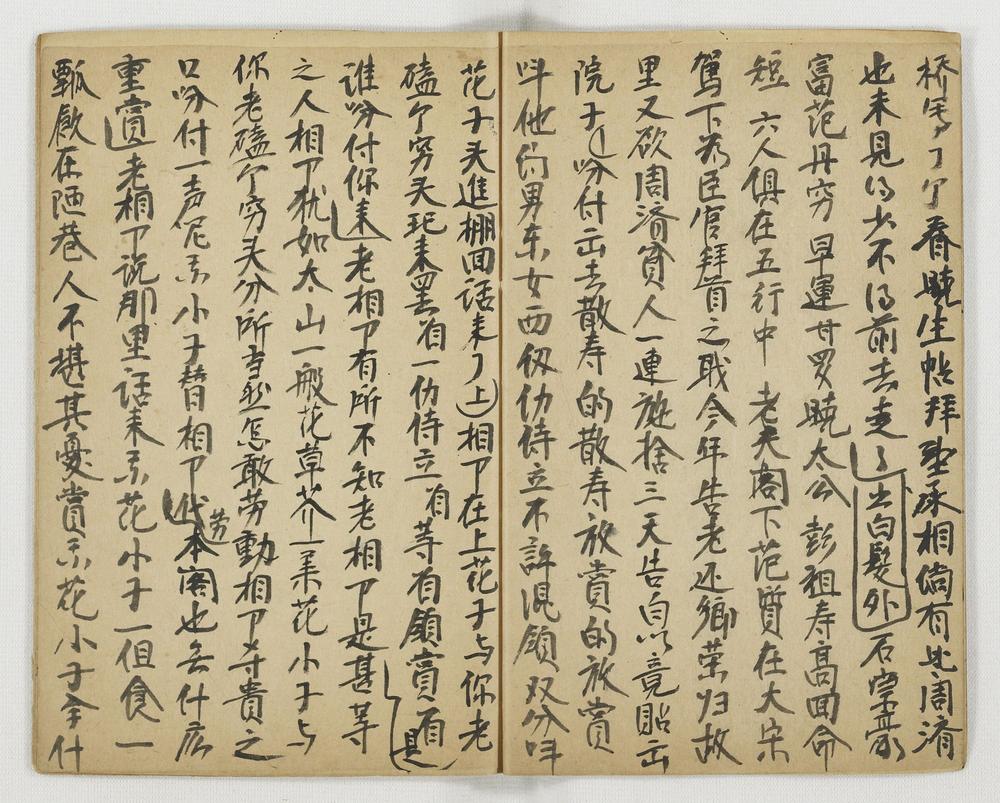 了了看曉生帖拜丞相倘有此周濟
也未見得少不得前去走(了)出白髮外 石崇豪
富范丹窮 早運甘罗曉太公 彭祖寿高回命
短 六人俱在五行中 老夫閣下范質在大宋
駕下为臣官拜首之职今年告老还鄉荣归故
里又欲周濟貧人一連施捨三天告白以竟貼出
院子吩付出去散寿的散寿放賞的放賞
呌他们男东女西侍立不許混領双分呌
花子头進棚回话来了(上)相下在上花子与你老
磕个穷头玘来罢有一侍立有等有領賞有是
谁吩付你来老相下有所不知老相下是甚等
之人相下犹如太山一般花草芥一耒花小子与
你老磕个穷头分所当然怎敢劳動相下寸貴之
口吩付一声小子替相下代劳本閣也無什広
重賞老相下说那里话来花小子一但食一
瓢飲在陋巷人不堪其憂賞花小子全什